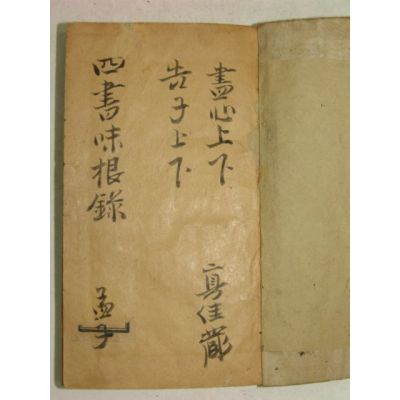 盡心上下 真佳藏
告子上下
四書味根錄 孟子